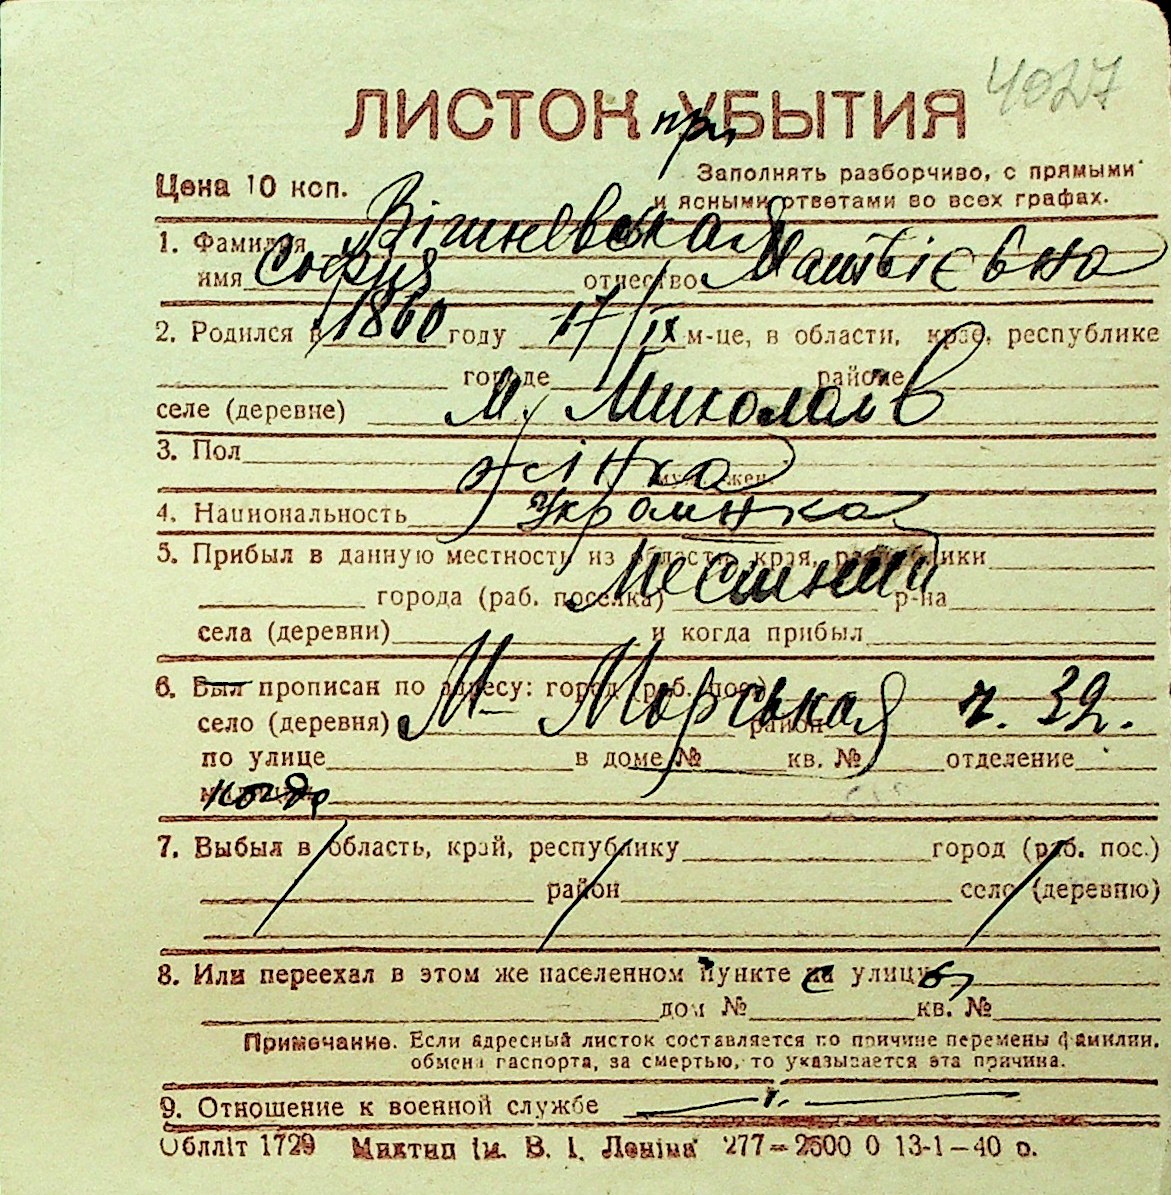 4027
ЛИСТОК при УБЫТИЯ
Цена 10 коп.
Заполнять разборчиво, с прямыми
и ясными ответами во всех графах.
1. Фамилия Вішневская
имя София отчество Матвієвна
2. Родился в 1860 году 17/IX м-це, в области, крае, республике
городе районе
селе (деревне) М. Миколаїв
3. Пол жінка
муж. жен.
4. Национальность Украинка
5. Прибыл в данную местность из области, края, республики
Местный
города (раб. поселка) р-на
села (деревни) и когда прибыл
6. Был прописан по адресу: город (раб. пос.)
село (деревня) М- Морськая район ч. 32.
по улице в доме № кв. № отделение
когда
7. Выбыл в область, край, республику город (раб. пос.)
район село (деревню)
8. Или переехал в этом же населенном пункте с улицы
дом № кв. №
Примечание. Если адресный листок составляется по причине перемены фамилии,
обмена паспорта, за смертью, то указывается эта причина.
9. Отношение к военной службе
Облліт 1729 Миктип ім. В. І. Леніна 277–2500 0 13-1–40 р.